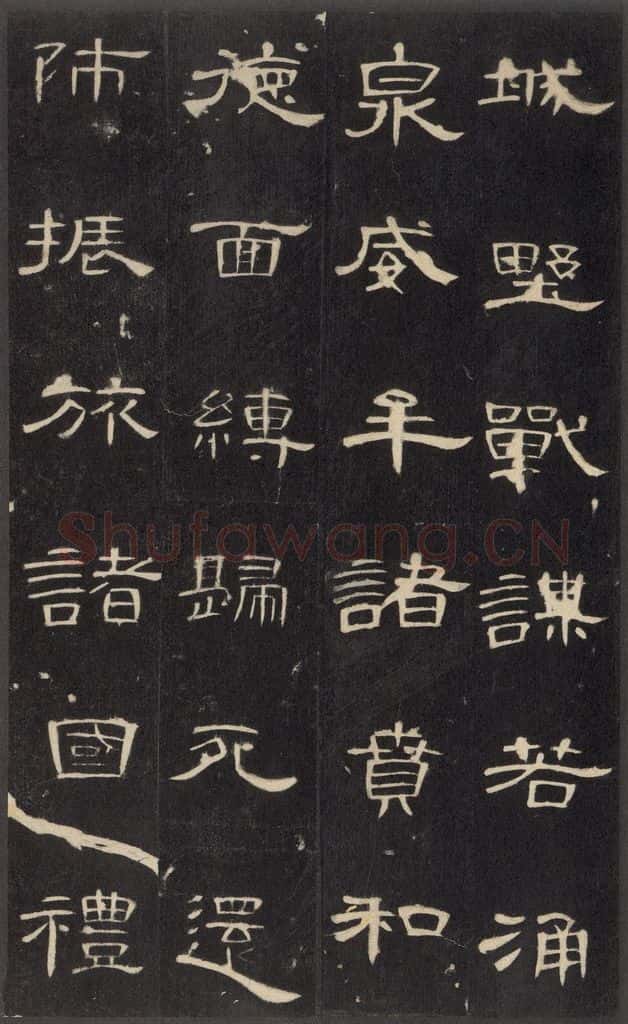 城野戰謀若涌
泉威牟諸賁和
德面縛歸死還
師振旅諸國禮
Shufawang.CN